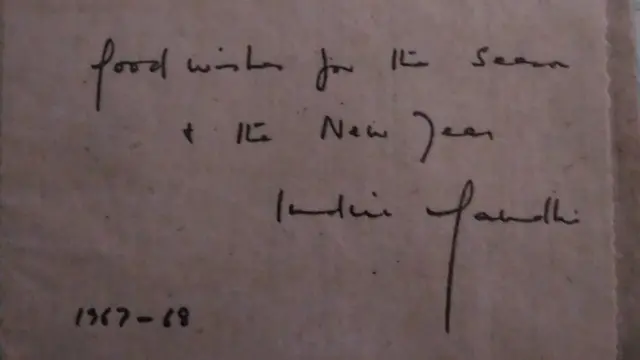 Good wishes for the Season
+ the New Year
Indira Gandhi
1967-68